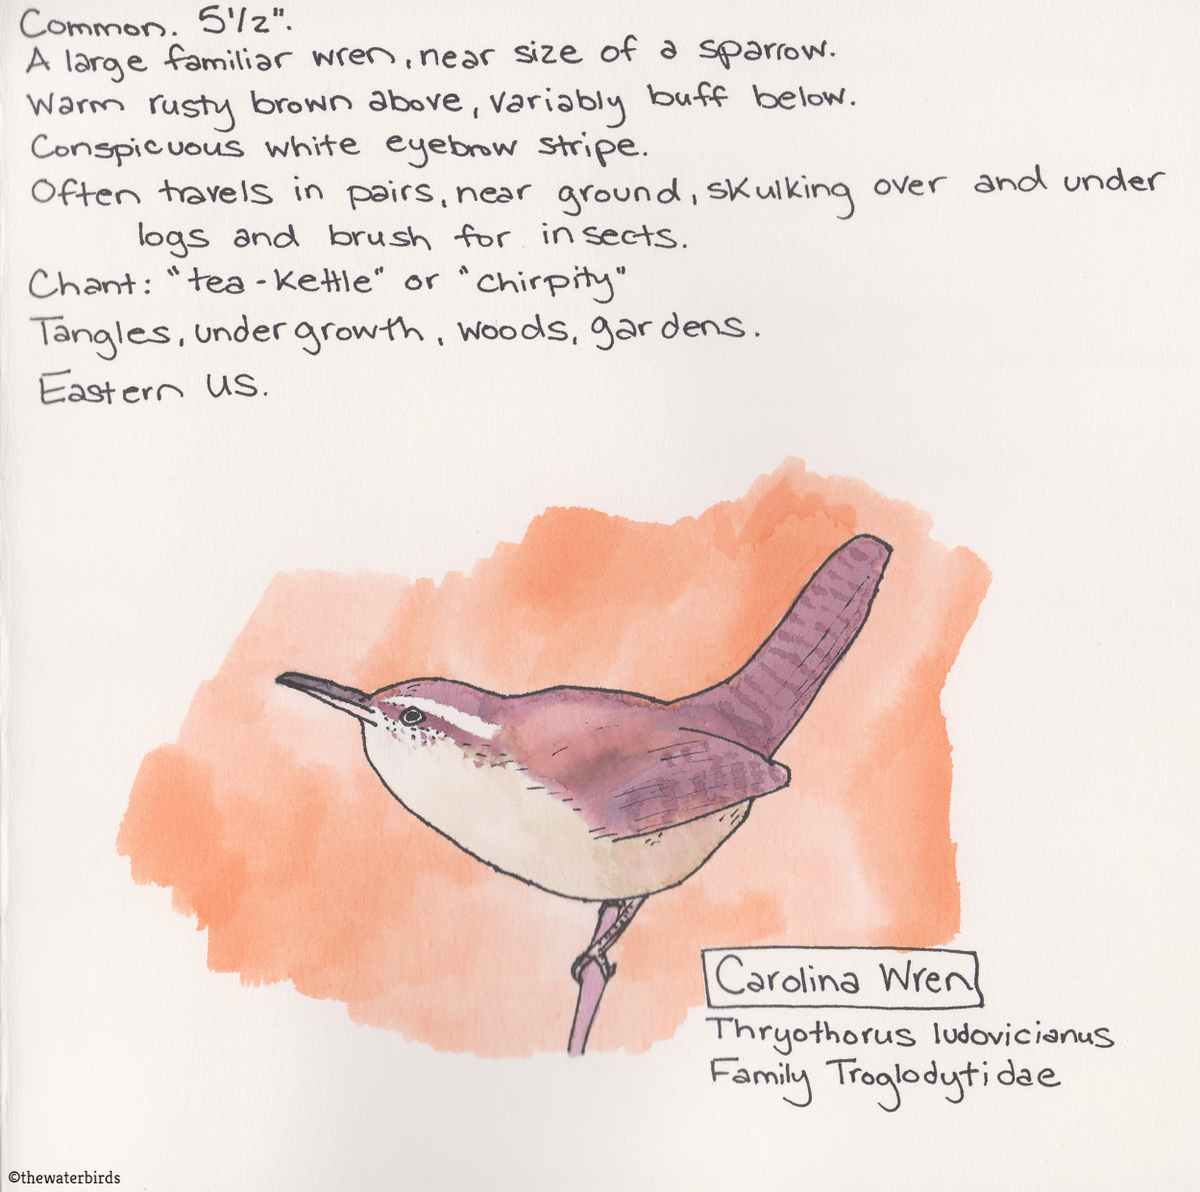 Common. 5 1/2".
A large familiar wren, near size of a sparrow.
Warm rusty brown above, variably buff below.
Conspicuous white eyebrow stripe.
Often travels in pairs, near ground, skulking over and under
logs and brush for insects.
Chant: "tea-kettle" or "chirpity"
Tangles, undergrowth, woods, gardens.
Eastern US.
Carolina Wren
Thryothorus ludovicianus
Family Troglodytidae
©thewaterbirds